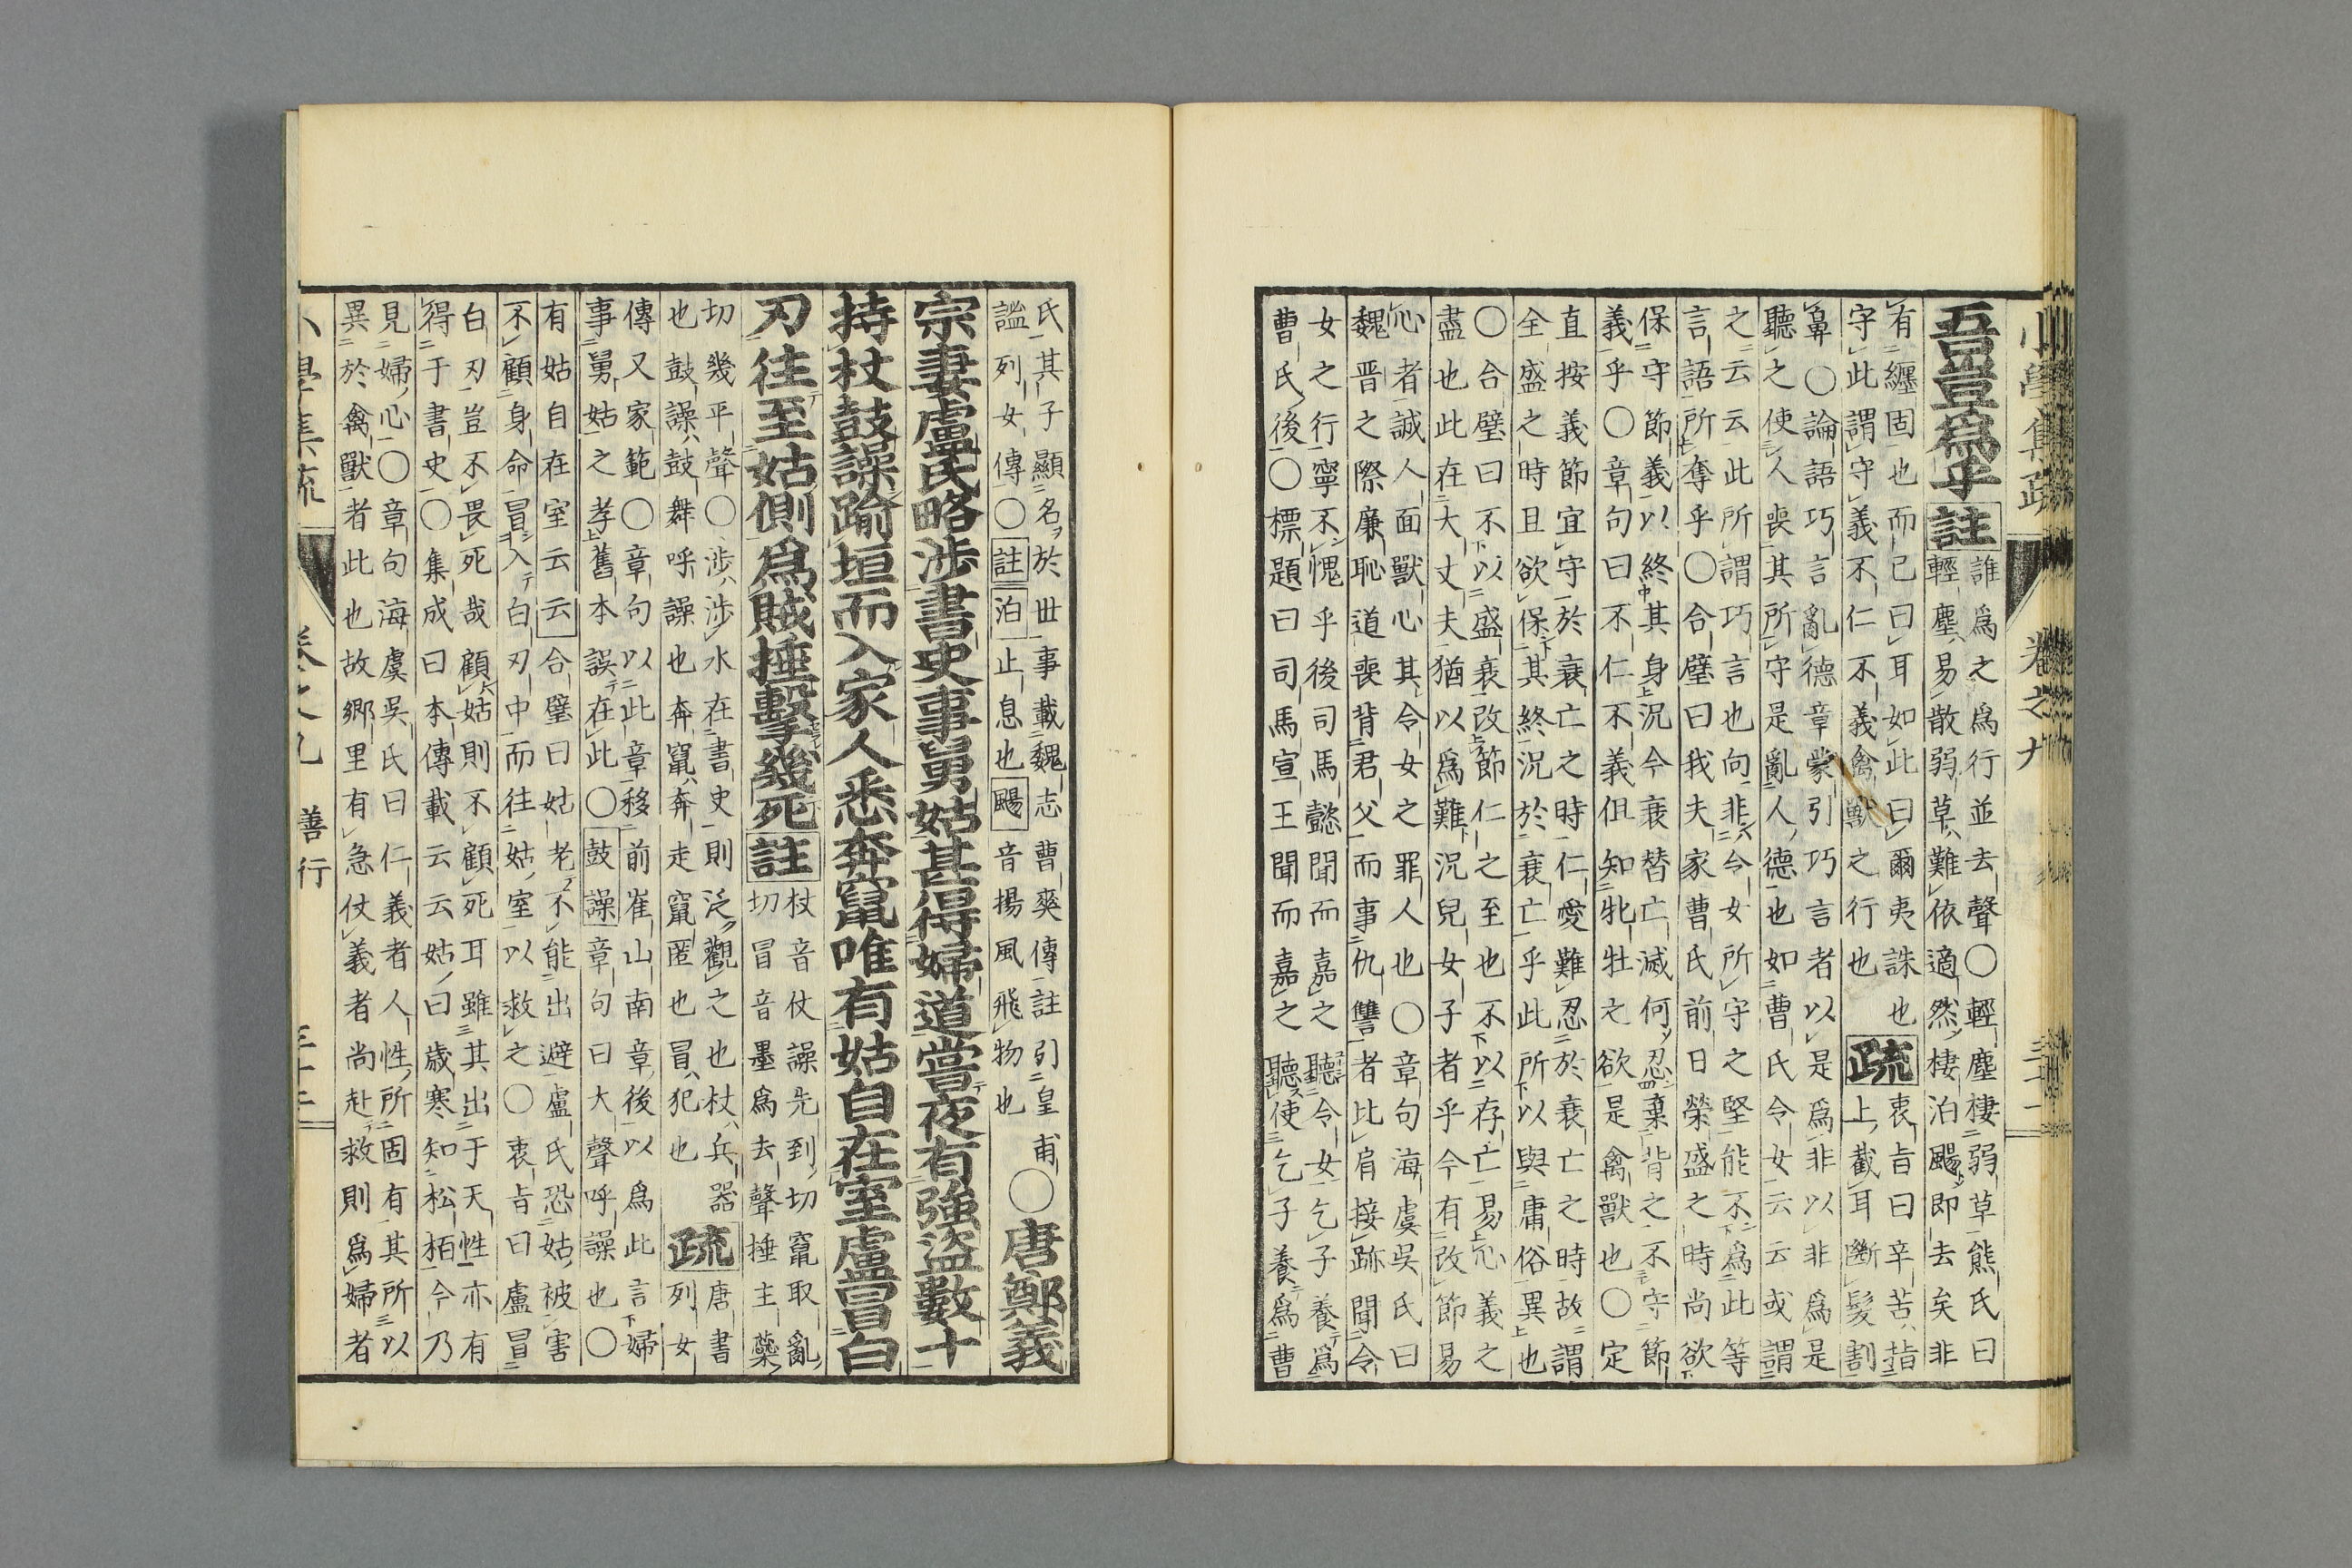 小學集疏 卷之九 三十二
吾豈爲乎 註 誰爲之爲行並去聲○輕塵棲弱草熊氏曰
輕塵易散弱草難依適然棲泊颺即去矣非
有纏固也而已曰耳如此曰爾夷誅也 疏 衷旨曰辛苦指
守此謂守義不仁不義禽獸之行也 上截耳斷髮割
鼻○論語巧言亂德章蒙引巧言者以是爲非以非爲是
聽之使人喪其所守是亂人德也如曹氏令女云云或謂
之云云此所謂巧言也向非令女所守之堅能不爲此等
言語所奪乎○合璧曰我夫家曹氏前日榮盛之時尚欲
保守節義以終其身況今衰替亡滅何忍棄背之不守節
義乎○章句曰不仁不義但知牝牡之欲是禽獸也○定
直按義節宜守於衰亡之時仁愛難忍於衰亡之時故謂
全盛之時且欲保其終況於衰亡乎此所以與庸俗異也
○合璧曰不以盛衰改節仁之至也不以存亡易心義之
盡也此在大丈夫猶以爲難況兒女子者乎今有改節易
心者誠人面獸心其令女之罪人也○章句海虞吳氏曰
魏晋之際廉恥道喪背君父而事仇讐者比肩接跡聞令
女之行寧不愧乎後司馬懿聞而嘉之聽令女乞子養爲
曹氏後○標題曰司馬宣王聞而嘉之聽使乞子養爲曹
氏其子顯名於世事載魏志曹爽傳註引皇甫
謐列女傳○註 泊止息也 颺音揚風飛物也
○唐鄭義
宗妻盧氏略涉書史事舅姑甚得婦道嘗夜有強盜數十
持杖鼓譟踰垣而入家人悉奔竄唯有姑自在室盧冒白
刃往至姑側爲賊捶擊幾死 註 杖音仗譟先到切竄取亂
切冒音墨爲去聲捶主蘂
切幾平聲○涉涉水在書史則泛觀之也杖兵器
也鼓譟鼓舞呼譟也奔竄奔走竄匿也冒犯也 疏 唐書
列女
傳又家範○章句以此章移前崔山南章後以爲此言婦
事舅姑之孝舊本誤在此○鼓譟章句曰大聲呼譟也○
有姑自在室云云合璧曰姑老不能出避盧氏恐姑被害
不顧身命冒入白刃中而往姑室以救之○衷旨曰盧冒
白刃豈不畏死哉顧姑則不顧死耳雖其出于天性亦有
得于書史○集成曰本傳載云云姑曰歲寒知松栢今乃
見婦心○章句海虞吳氏曰仁義者人性所固有其所以
異於禽獸者此也故鄉里有急仗義者尚赴救則爲婦者
小學集疏 卷之九 善行 三十二